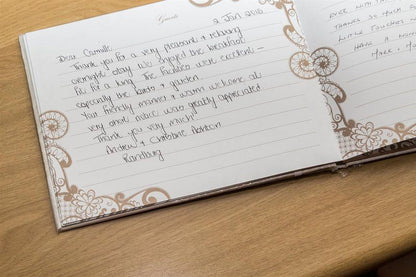 Guests
2 Jan 2016
Dear Camille
Thank you for a very pleasant & relaxing
overnight stay. We enjoyed the breakfast
fit for a king. The facilities were excellent -
especially the birds & garden.
Your friendly manner & warm welcome at
very short notice was greatly appreciated
Thank you very much!
Andrew & Christine Ashton
Randburg
THANKS SO MUCH
LITTLE TOUCHES
HAVE A
MARK &